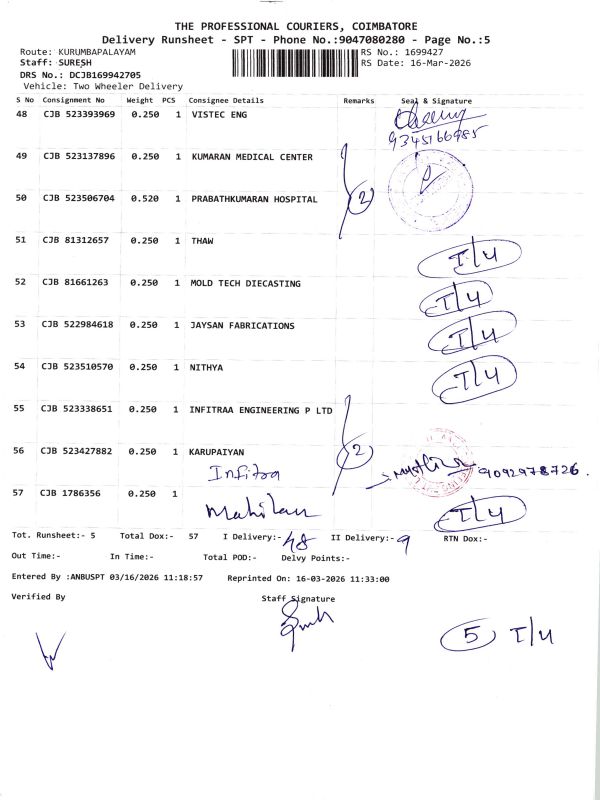 THE PROFESSIONAL COURIERS, COIMBATORE
Delivery Runsheet - SPT - Phone No.:9047080280 - Page No.:5
Route: KURUMBAPALAYAM RS No.: 1699427
Staff: SURESH RS Date: 16-Mar-2026
DRS No.: DCJB169942705
Vehicle: Two Wheeler Delivery
S No Consignment No Weight PCS Consignee Details Remarks Seal & Signature
48 CJB 523393969 0.250 1 VISTEC ENG
9345166985
49 CJB 523137896 0.250 1 KUMARAN MEDICAL CENTER
50 CJB 523506704 0.520 1 PRABATHKUMARAN HOSPITAL 2
51 CJB 81312657 0.250 1 THAW T/4
52 CJB 81661263 0.250 1 MOLD TECH DIECASTING T/4
53 CJB 522984618 0.250 1 JAYSAN FABRICATIONS T/4
54 CJB 523510570 0.250 1 NITHYA T/4
55 CJB 523338651 0.250 1 INFITRAA ENGINEERING P LTD
56 CJB 523427882 0.250 1 KARUPAIYAN 2
Infitra 9092978726.
57 CJB 1786356 0.250 1 Mahilan T/4
Tot. Runsheet:- 5 Total Dox:- 57 I Delivery:- 48 II Delivery:- 9 RTN Dox:-
Out Time:- In Time:- Total POD:- Delvy Points:-
Entered By :ANBUSPT 03/16/2026 11:18:57 Reprinted On: 16-03-2026 11:33:00
Verified By Staff Signature
5 T/4